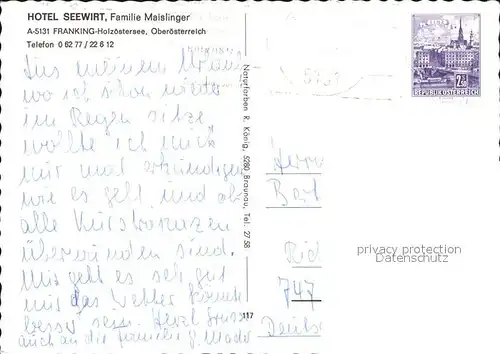 HOTEL SEEWIRT, Familie Maislinger
A-5131 FRANKING-Holzöstersee, Oberösterreich
Telefon 0 62 77 / 22 6 12
Aus meinem Urlaub
wo ich schon wieder
im Regen sitze
wollte ich mich
nur mal erkundigen
wie es geht und ob
alle
überwunden sind.
Mir geht es sehr gut
nur das Wetter könnte
besser sein. Herzl. Gruss
auch an die Familie
Naturfarben R. König, 5280 Braunau, Tel. 27 58
117
5131
2.50
REPUBLIK ÖSTERREICH
Herrn
747
privacy protection
Datenschutz